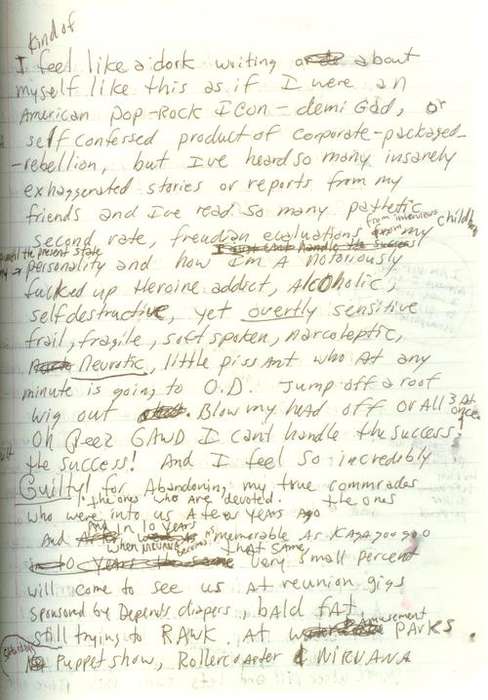 kind of
I feel like a dork writing about
myself like this as if I were an
American pop-Rock ICon - demi God, or
self confessed product of corporate-packaged-
-rebellion, but Ive heard so many insanely
exhaggerated stories or reports from my
friends and Ive read so many pathetic
second rate, freudian evaluations from interviews from my childhood
up until the present state
personality and how I'm A notoriously
fucked up Heroine addict, Alcoholic,
self destructive, yet overtly sensitive
frail, fragile, soft spoken, narcoleptic,
Neurotic, little piss Ant who at any
minute is going to O.D. Jump off a roof
wig out Blow my head off OR All 3 At once
Oh Pleez GAWD I cant handle the success!
the success! And I feel so incredibly
Guilty! for Abandoning my true commrades
the ones who are devoted. the ones
who were into us A few years Ago
And in 10 years
when NIRVANA becomes as memorable As Kajagoogoo
that same very small percent
will come to see us At reunion gigs
sponsored by Depends diapers, bAld fAt
still trying to RAwk At Amusement PArks.
Saturdays
Puppet show, Rollercoaster & NIRVANA